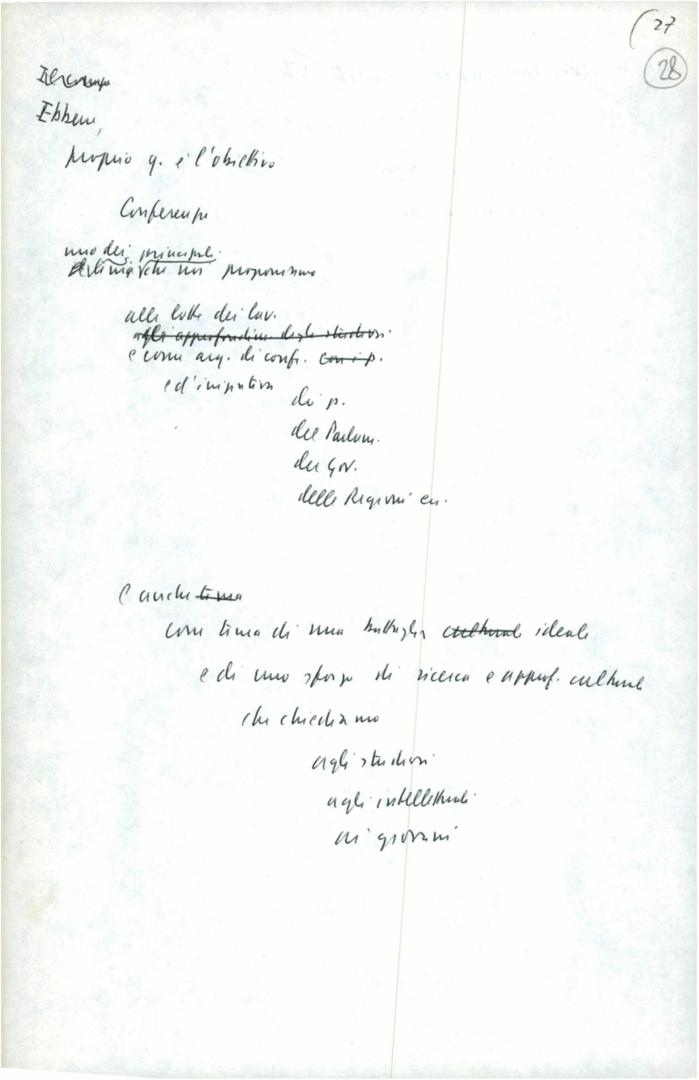 27
28
Ebbene,
proprio q. è l'obiettivo
Conferenza
uno dei principali
che noi proponiamo
alle lotte dei lav.
agli approfondim. degli studiosi.
e come arg. di confr. con i p.
e d'iniziativa
dei p.
del Parlam.
del Gov.
delle Regioni ecc.
E anche tema
come tema di una battaglia culturale ideale
e di uno sforzo di ricerca e approf. culturale
che chiediamo
agli studiosi
agli intellettuali
ai giovani